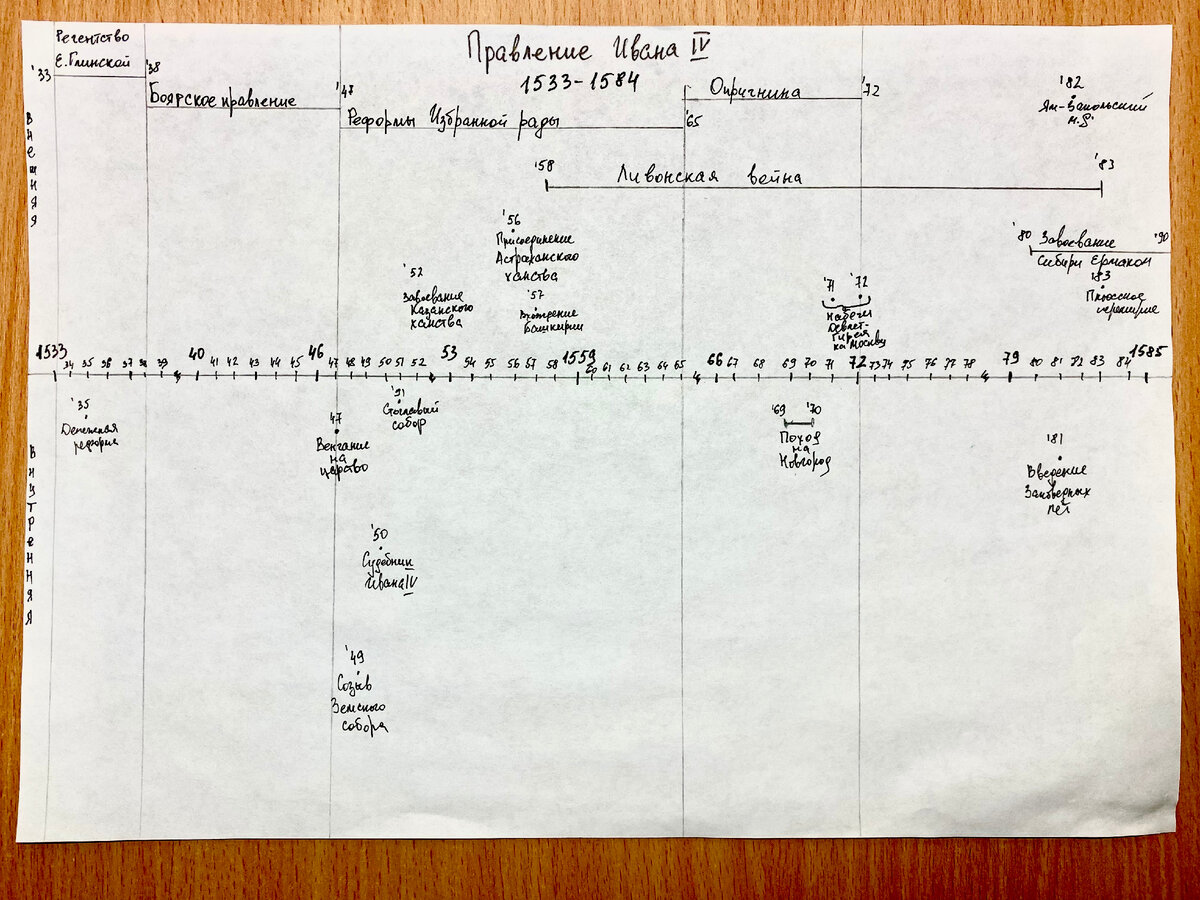 Правление Ивана IV
1533-1584
Регентство
Е.Глинской
'33
'38
Боярское правление
'47
Реформы Избранной рады
'65
Опричнина
'72
'82
Ям-Запольский
м.д.
'58
Ливонская война
'83
Внешняя
'56
Присоединение
Астраханского
ханства
'57
Вхождение
Башкирии
'52
Завоевание
Казанского
ханства
'71 '72
Набеги
Девлет-
Гирея
на Москву
'80 Завоевание '90
Сибири Ермаком
'83
Плюсское
перемирие
1533 34 35 36 37 38 39 40 41 42 43 44 45 46 47 48 49 50 51 52 53 54 55 56 57 58 1559 60 61 62 63 64 65 66 67 68 69 70 71 72 73 74 75 76 77 78 79 80 81 82 83 84 1585
Внутренняя
'35
Денежная
реформа
47
Венчание
на
царство
'51
Стоглавый
собор
'50
Судебник
Ивана IV
'49
Созыв
Земского
собора
'69 '70
Поход
на
Новгород
'81
Введение
Заповедных
лет